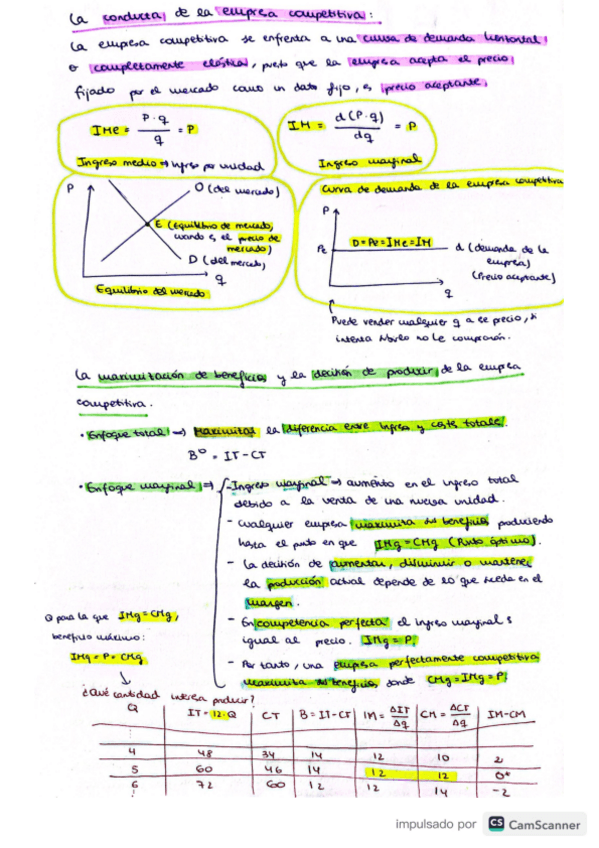 La conducta de la empresa competitiva:
La empresa competitiva se enfrenta a una curva de demanda horizontal
o completamente elástica, puesto que la empresa acepta el precio
fijado por el mercado como un dato fijo, es precio aceptante.
IMe = P·q / q = P
Ingreso medio → ingreso por unidad
IM = d(P·q) / dq = P
Ingreso marginal
P
O (del mercado)
E (Equilibrio de mercado,
cuando es el precio de
mercado)
D (del mercado)
q
Equilibrio del mercado
Curva de demanda de la empresa competitiva
P
Pe
D=Pe=IMe=IM
d (demanda de la
empresa)
(Precio aceptante)
q
Puede vender cualquier q a ese precio, si
intenta no le comprarán.
La maximización de beneficios y la decisión de producir de la empresa
competitiva.
• Enfoque total ⇒ Maximizar la diferencia entre ingreso y costes totales.
Bº = IT - CT
• Enfoque marginal ⇒ - Ingreso marginal ⇒ aumento en el ingreso total
debido a la venta de una nueva unidad.
- Cualquier empresa maximiza sus beneficios produciendo
hasta el punto en que IMg = CMg (Punto óptimo).
- La decisión de aumentar, disminuir o mantener
la producción actual depende de lo que suceda en el
margen.
- En competencia perfecta el ingreso marginal es
igual al precio. IMg = P
- Por tanto, una empresa perfectamente competitiva
maximiza sus beneficios donde CMg = IMg = P
Q para la que IMg = CMg,
beneficio máximo:
IMg = P = CMg
¿Qué cantidad interesa producir?
Q IT = 12·Q CT B = IT-CT IM = ΔIT/Δq CM = ΔCT/Δq IM-CM
4 48 34 14 12 10 2
5 60 46 14 12 12 0*
6 72 60 12 12 14 -2
impulsado por CS CamScanner